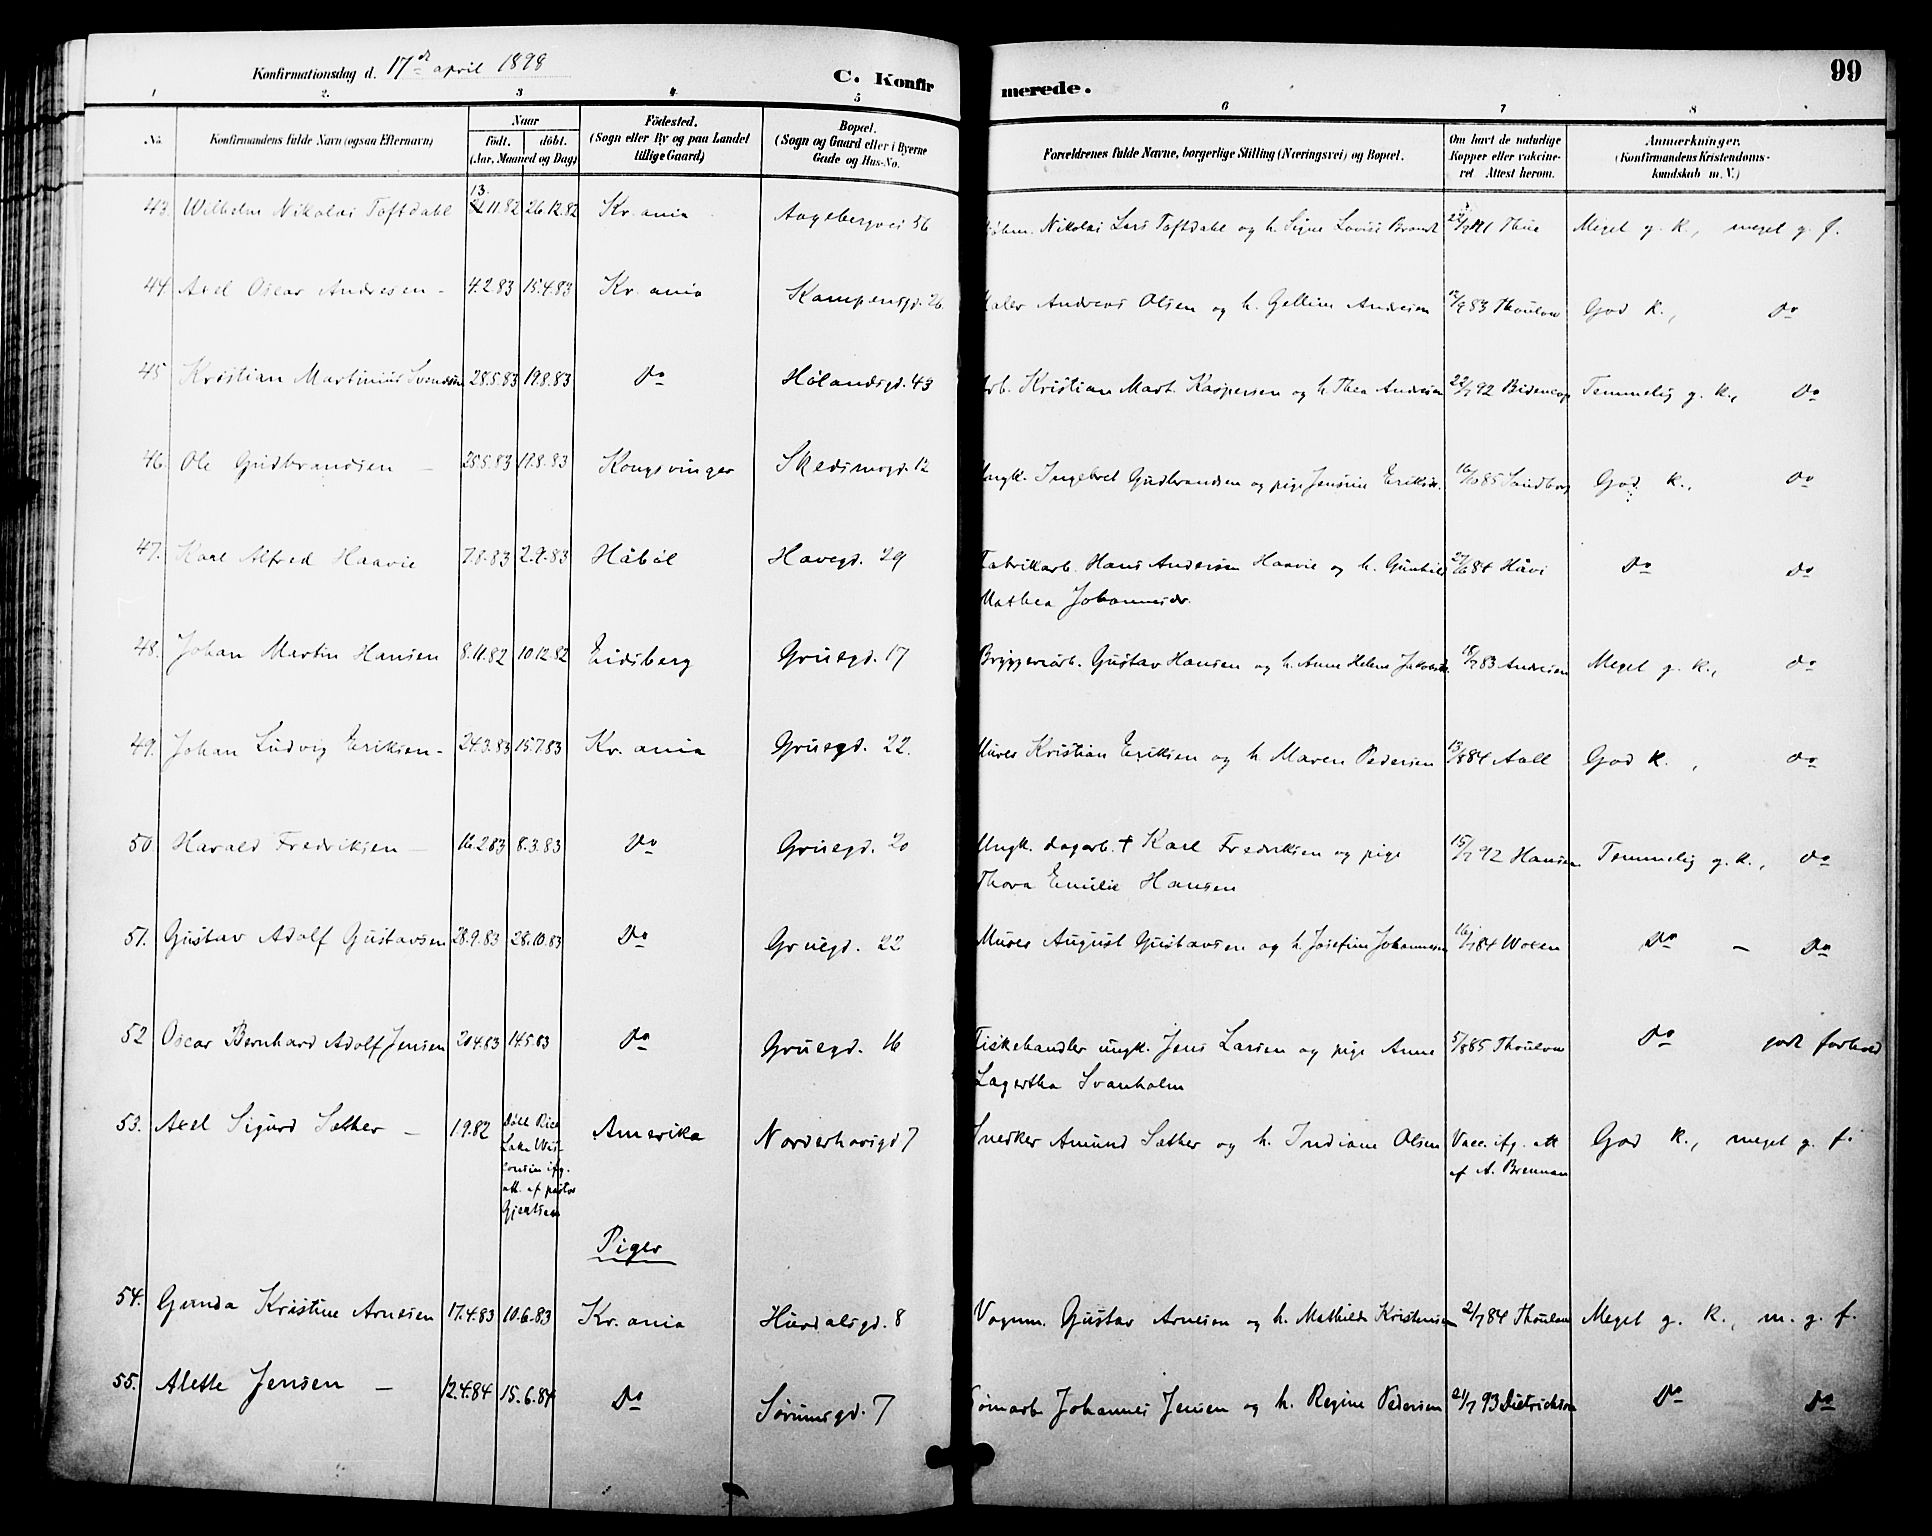 Konfirmationsdag d. 17de april 1898
C. Konfirmerede.
99
1 2. 3 4 5 6 7 8
No.
Konfirmandens fulde Navn (ogsaa Efternavn)
Naar
født. døbt.
(Aar, Maaned og Dag)
Fødested.
(Sogn eller By og paa Landet
tillige Gaard)
Bopæl.
(Sogn og Gaard eller i Byerne
Gade og Hus-No.
Forældrenes fulde Navne, borgerlige Stilling (Næringsvei) og Bopæl.
Om havt de naturlige
Kopper eller vakcine-
ret Attest herom.
Anmærkninger.
(Konfirmandens Kristendoms-
kundskab m. V.)
43. Wilhelm Nikolai Toftdahl 13.11.82 26.12.82 Kr.ania Aagebergvei 56 Nikolai Lars Toftdahl og h. Signe Lovise Brandt Thue Meget g. k., meget g. f.
44. Axel Oscar Andresen - 4.2.83 15.4.83 Kr.ania Kampensgd. 26 Maler Andreas Olsen og h. Gelline Andresen 12/9 83 Thoulow God k., Do
45 Kristian Martinius Svendsen 28.5.83 19.8.83 Do Hølandsgd. 43 Arb. Kristian Mart. Kaspersen og h. Thea Andresen 22/7 92 Bidenkap Temmelig g. k., Do
46. Ole Gudbrandsen - 25.5.83 17.8.83 Kongsvinger Skedsmogd. 12 Ungk. Ingebret Gudbrandsen og pige Jensine Eriksdr. 16/10 85 Sandborg God k., Do
47. Karl Alfred Haavie 7.8.83 2.9.83 Håbøl Havegd. 29 Fabrikarb. Hans Andersen Haavie og h. Gunhild 84 Håvi Do Do
Mathea Johannesdr.
48. Johan Martin Hansen 8.11.82 10.12.82 Eidsberg Gruegd. 17 Bryggeriarb. Gustav Hansen og h. Anne Helene 18/7 83 Andresen Meget g. k., do
49. Johan Ludvig Eriksen - 24.3.83 15.7.83 Kr.ania Gruegd. 22. Murer Kristian Eriksen og h. Maren Pedersen 13/8 84 Aall God k., do
50 Harald Fredriksen - 16.2.83 8.3.83 Do Gruegd. 20 Ungk. dagarb. † Karl Fredriksen og pige 15/7 92 Hansen Temmelig g. k., do
Thora Emilie Hansen
51. Gustav Adolf Gustavsen 28.9.83 28.10.83 Do Gruegd. 22 Murer August Gustavsen og h. Josefine Johannesen 16/7 84 Woxen Do - Do
52 Oscar Bernhard Adolf Jensen 20.4.83 14.5.83 Do Gruegd. 16 Fiskehandler ungk. Jens Larsen og pige Anne 5/8 85 Thoulow Do godt forhold
Lagertha Svanholm
53. Axel Sigurd Sæther - 1.9.82 Døbt Rice Amerika Norderhovsgd 7 Snedker Amund Sæther og h. Indiane Olsen Vacc. ifg. att God k., meget g. f.
Lake Wis-
consin ifg.
att. af pastor
Gjertsen
af A. Brennan
Piger
54. Gunda Kristine Arnesen 17.4.83 10.6.83 Kr.ania Hurdalsgd. 8 Vognm. Gustav Arnesen og h. Mathilde Kristensen 2/7 84 Thoulow Meget g. k., m. g. f.
55. Alette Jensen - 12.4.84 15.6.84 Do Sørumsgd. 7 Johannes Jensen og h. Regine Pedersen 21/7 93 Dietrichson Do Do